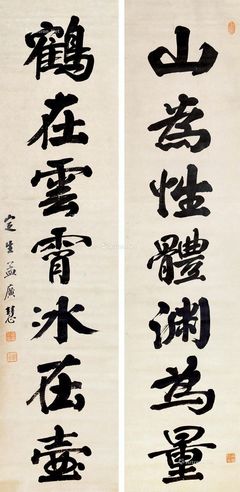 山為性體淵為量
鶴在雲霄冰在壺
定生孟廣慧